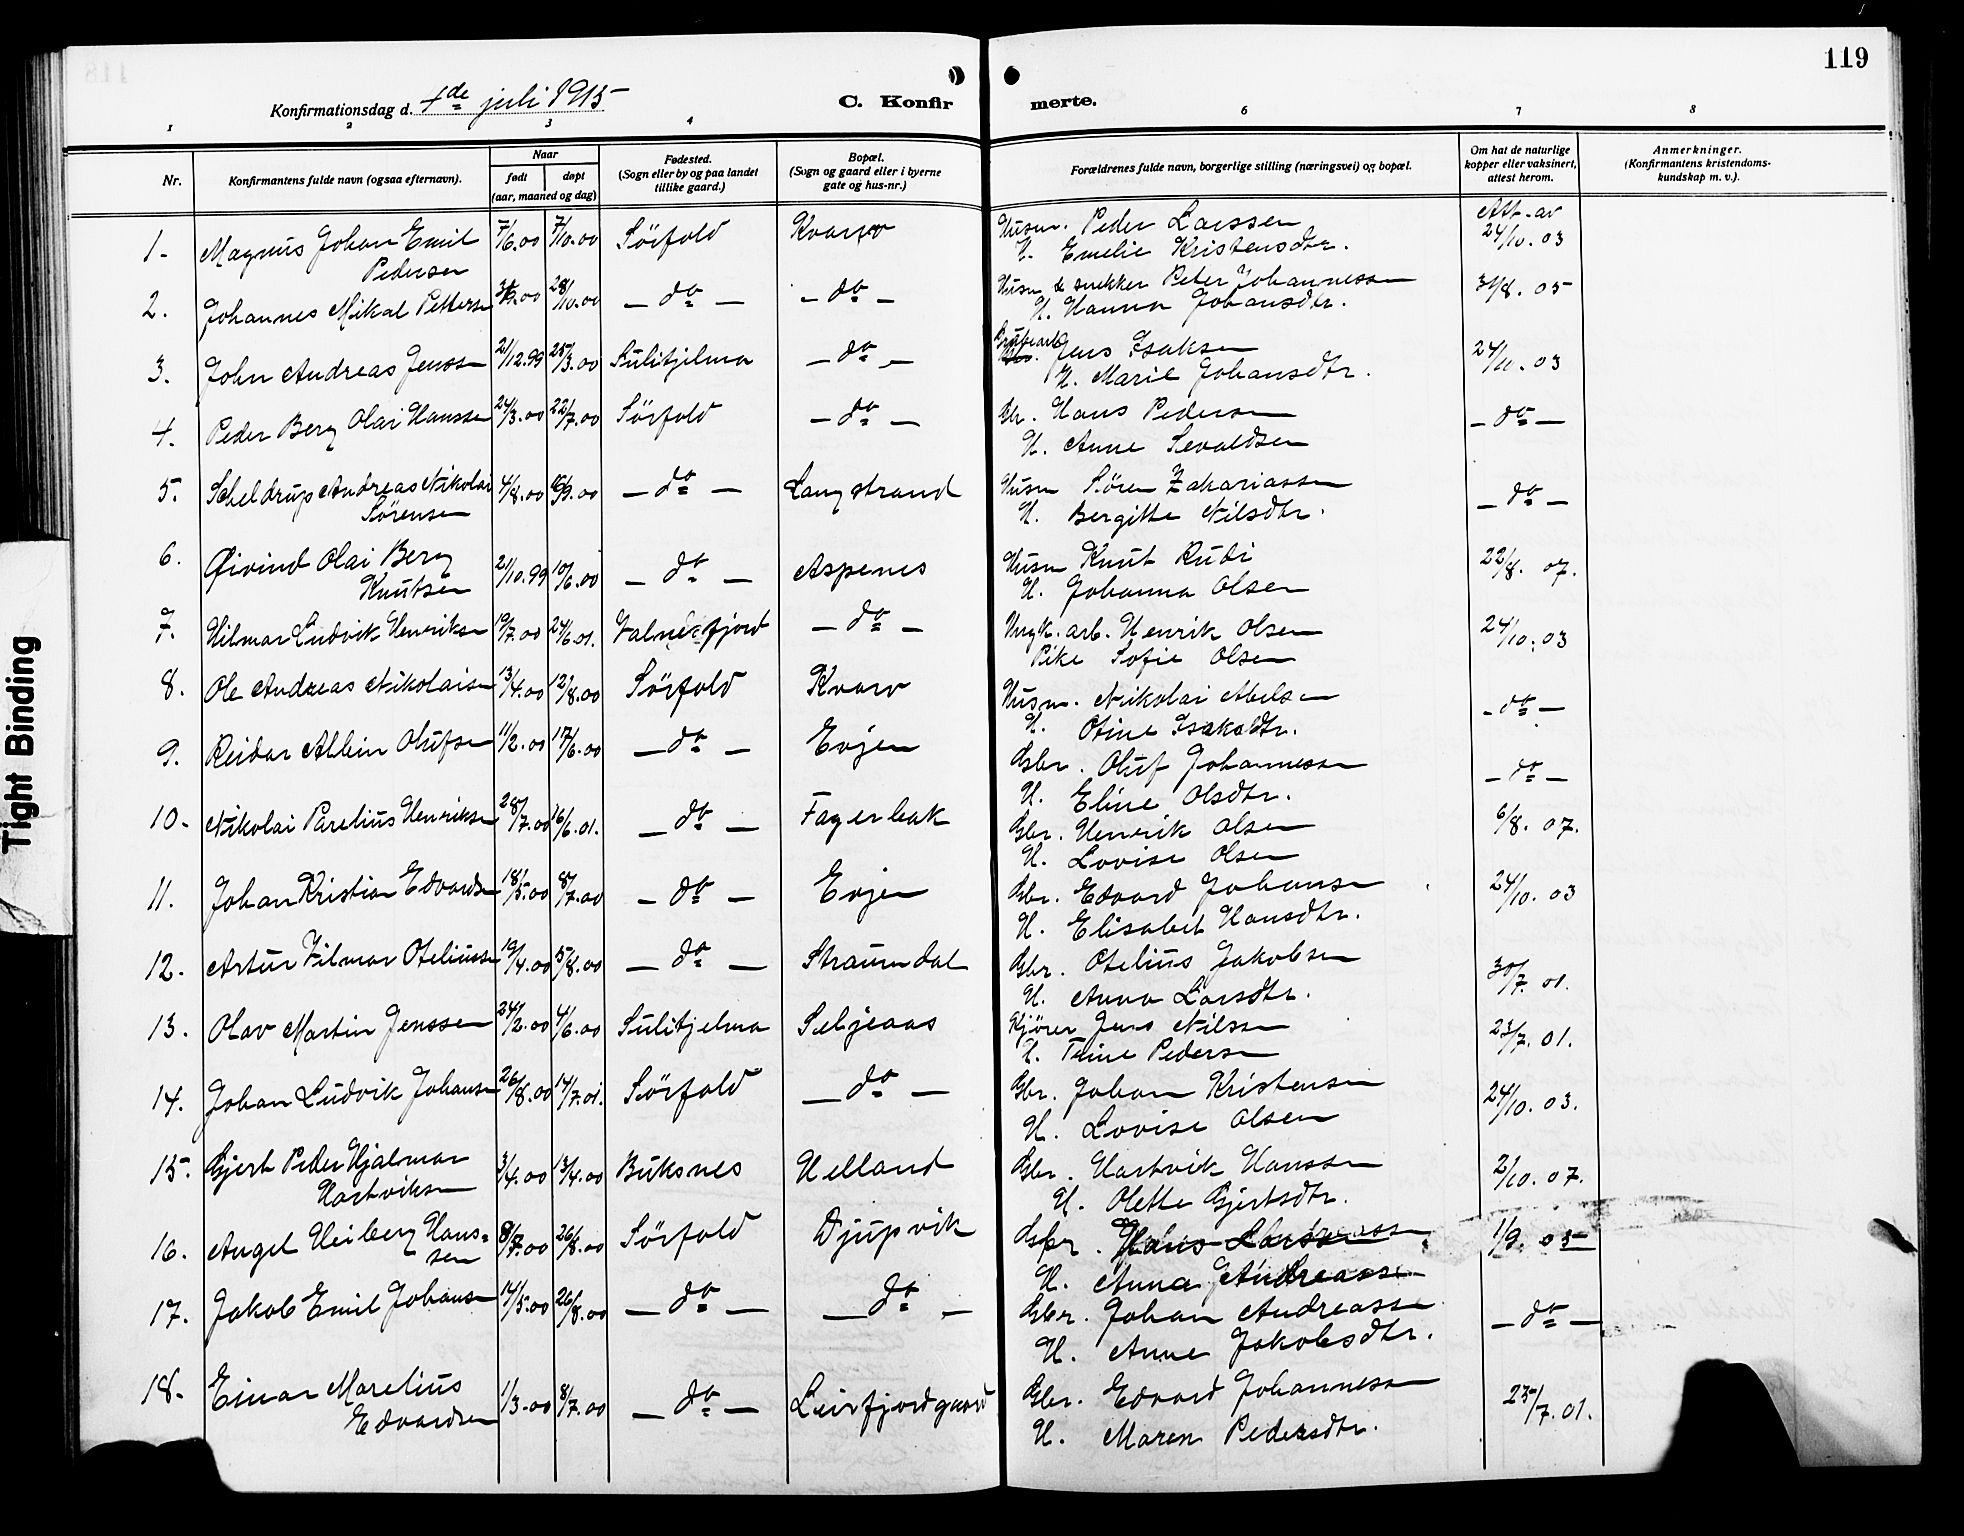 119
Konfirmationsdag d. 4de juli 1915
C. Konfirmerte.
1 2 3 4 6 7 8
Nr.
Konfirmantens fulde navn (ogsaa efternavn).
Naar
født døpt
(aar, maaned og dag)
Fødested.
(Sogn eller by og paa landet
tillike gaard.)
Bopæl.
(Sogn og gaard eller i byerne
gate og hus-nr.)
Forældrenes fulde navn, borgerlige stilling (næringsvei) og bopæl.
Om hat de naturlige
kopper eller vaksinert,
attest herom.
Anmerkninger.
(Konfirmantens kristendoms-
kundskap m. v.).
1. Magnus Johan Emil 7/6.00 7/10.00 Sörfold Kvarv Husm. Peder Larssen Att. av
Pedersen H. Emelie Kristensdtr. 24/10.03
2. Johannes Mikal Pettersen 28/10.00 - do - - do - Husm & snekker Peter Johannessen 31/8.05
H. Hanna Johansdtr.
3. John Andreas Jenssen 21/12.99 25/3.00 Sulitjelma - do - Grubearb. Jens Isaksen 24/10.03
H. Marie Johansdtr.
4. Peder Berg Olai Hanssen 24/3.00 22/7.00 Sörfold - do - Gbr. Hans Pedersen - do -
H. Anne Sevaldsen
5. Scheldrup Andreas Nikolai 4/8.00 - do - Langstrand Husm Søren Zakariassen - do -
Sørensen H. Bergitte Nilsdtr.
6. Øivind Olai Berg 21/10.99 10/6.00 - do - Aspenes Husm Knut Rubi 22/8. 07.
Knutsen H. Johanna Olsen
7. Hilmar Ludvik Henriksen 19/7.00 24/6.01. Valnesfjord - do - Ungk. arb. Henrik Olsen 24/10.03
Pike Sofie Olsen
8. Ole Andreas Nikolaisen 13/4.00 12/8.00 Sörfold Kvarv Husm. Nikolai Abelsen - do -
H. Otine Isaksdtr.
9. Reidar Albin Olufsen 11/2.00 17/6.00 - do - Evjen Gbr. Oluf Johannessen - do -
H. Eline Olsdtr.
10. Nikolai Parelius Henriksen 28/7.00 16/6.01. - do - Fagerbak Gbr. Henrik Olsen 6/8. 07.
H. Lovise Olsen
11. Johan Kristian Edvardsen 18/5.00 8/7.00 - do - Evjen Gbr. Edvard Johansen 24/10.03
H. Elisabet Hansdtr.
12. Artur Vilmar Oteliussen 19/4.00 5/8.00 - do - Straumdal Gbr. Otelius Jakobsen 30/7.01.
H. Anna Larsdtr.
13. Olav Martin Jenssen 24/2.00 4/6.00 Sulitjelma Seljeaas Kjörer Jens Nilssen 23/7.01.
H. Trine Pedersen
14. Johan Ludvik Johansen 26/8.00 14/7.01. Sörfold - do - Gbr. Johan Kristensen 24/10.03.
H. Lovise Olsen
15. Gjert Peder Hjalmar 3/4.00 13/4.00 Buksnes Helland Gbr. Hartvik Hanssen 2/10.07.
Hartviksen H. Olette Gjertsdtr.
16. Angel Heiberg Hans- 8/7.00 26/8.00 Sörfold Djupvik Gbr. Hans 1/9.05
sen H. Anna Andreassen
17. Jakob Emil Johansen 14/5.00 26/8.00 - do - - do - Gbr. Johan Andreassen - do -
H. Anne Jakobsdtr.
18. Einar Marelius 1/3.00 8/7.00 - do - Leirfjordgaard Gbr. Edvard Johannessen 23/7.01.
Edvardsen H. Maren Pedersdtr.
Tight Binding